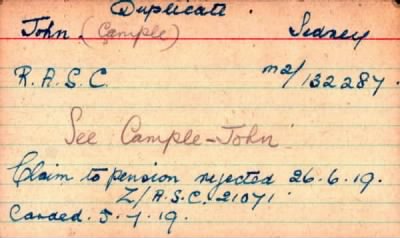 Duplicate.
John. (Cample) Sidney
R.A.S.C. m2/132287.
See Cample-John
Claim to pension rejected 26.6.19.
Z/A.S.C. 21071
Carded. 5.7.19.